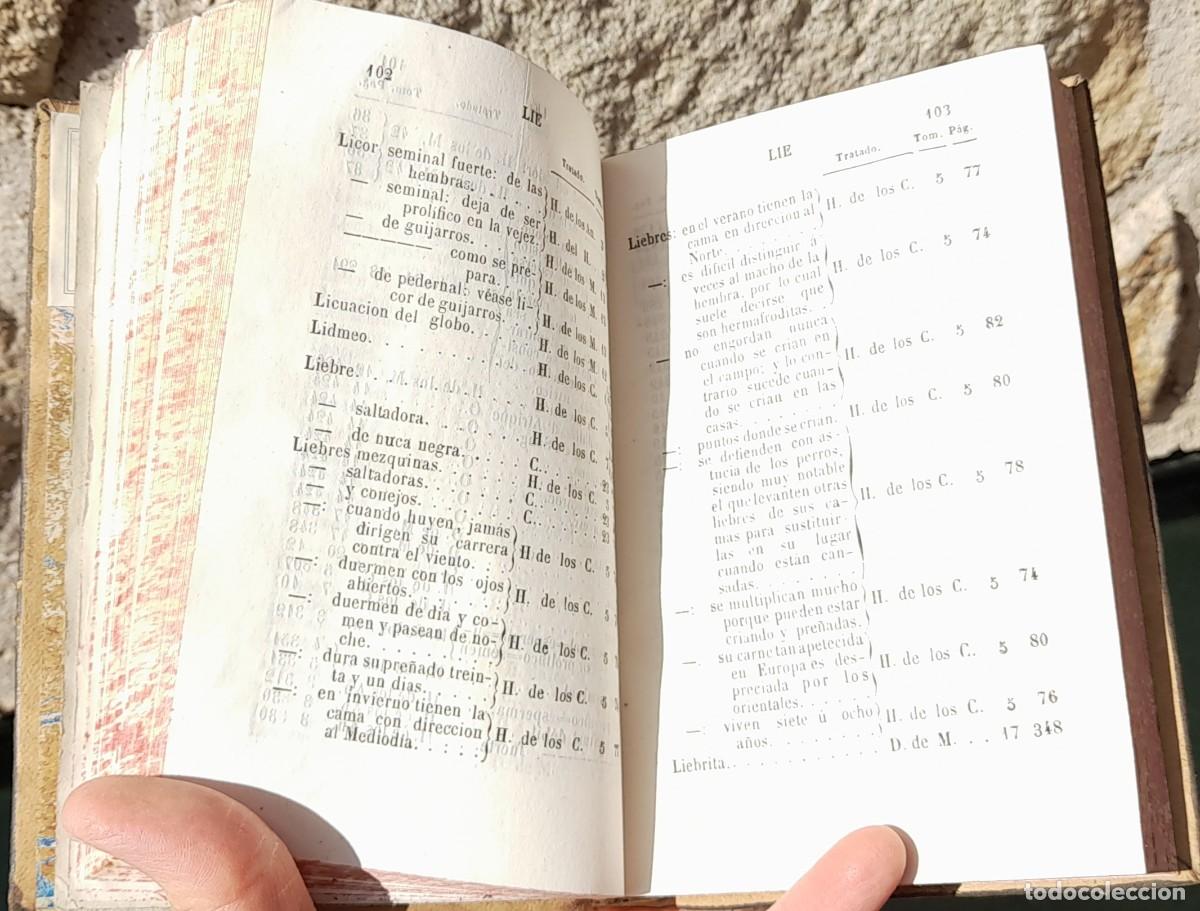 102
LIE
Tratado.
Licor seminal fuerte: de las
hembras. . . . . H. de los
— seminal: deja de ser
prolífico en la vejez. H. del H.
— de guijarros. . . . H. de los M.
—————— como se pre-
para. . . H. de los M.
— de pedernal: véase li-
cor de guijarros. . H. de los M.
Licuacion del globo. . H. de los M.
Lidmeo. . . . . . . . H. de los C.
Liebre. . . . . . . . H. de los C.
— saltadora. . . . . H. de los C.
— de nuca negra. . . . C. . . .
Liebres mezquinas. . . H. de los C.
— saltadoras. . . . . C. . . . .
— y conejos. . . . . C. . . . . 23
—: cuando huyen, jamás
dirigen su carrera
contra el viento. . . H de los C. 5
—: duermen con los ojos
abiertos. . . . . . H. de los C. 5
—: duermen de dia y co-
men y pasean de no-
che. . . . . . . . H. de los C. 5
—: dura su preñado trein-
ta y un dias. . . . . H. de los C. 5
—: en invierno tienen la
cama con direccion
al Mediodia. . . . . H. de los C. 5
103
LIE
Tratado. Tom. Pág.
Liebres: en el verano tienen la
cama en direccion al
Norte. . . . . . . H. de los C. 5 77
—: es difícil distinguir á
veces al macho de la
hembra, por lo cual
suele decirse que
son hermafroditas. . H. de los C. 5 74
— no engordan nunca
cuando se crian en
el campo; y lo con-
trario sucede cuan-
do se crian en las
casas. . . . . . . . H. de los C. 5 82
—: puntos donde se crian. H. de los C. 5 80
—: se defienden con as-
tucia de los perros,
siendo muy notable
el que levanten otras
liebres de sus ca-
mas para sustituir-
las en su lugar
cuando están can-
sadas. . . . . . . . H. de los C. 5 78
—: se multiplican mucho
porque pueden estar
criando y preñadas. H. de los C. 5 74
—: su carne tan apetecida
en Europa es des-
preciada por los
orientales. . . . . . H. de los C. . 5 80
—: viven siete ú ocho
años. . . . . . . . H. de los C. 5 76
Liebrita. . . . . . . . . D. de M. . . 17 348
todocoleccion